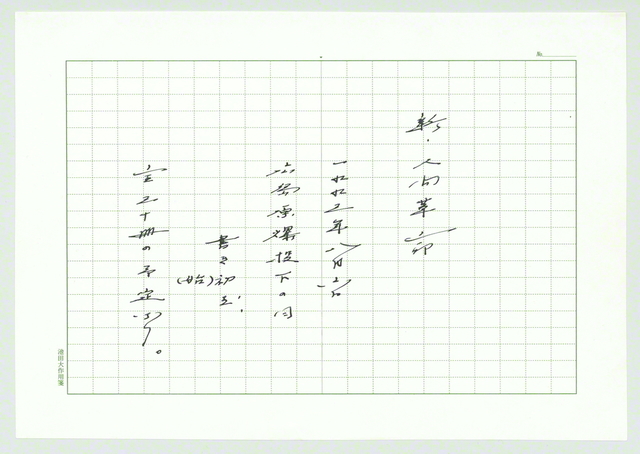 №
新・人間革命
一九九三年八月六日
広島原爆投下の日
書き初む
(始)
全三十冊の予定なり。
池田大作用箋